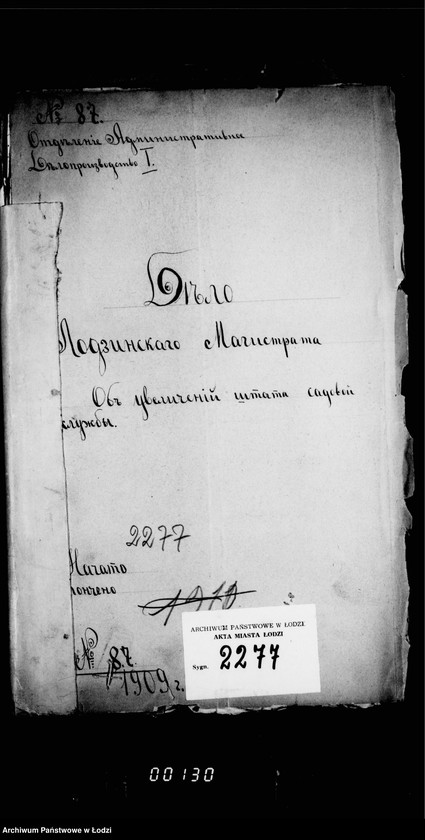 № 87.
Отдѣленіе Административное
Дѣлопроизводство I.
Дѣло
Лодзинскаго Магистрата
Объ увеличеній штата садовой
службы.
2277
Начато
кончено
1910
№ 87.
1909 г.
ARCHIWUM PAŃSTWOWE W ŁODZI
AKTA MIASTA ŁODZI
Sygn. 2277
00130
Archiwum Państwowe w Łodzi